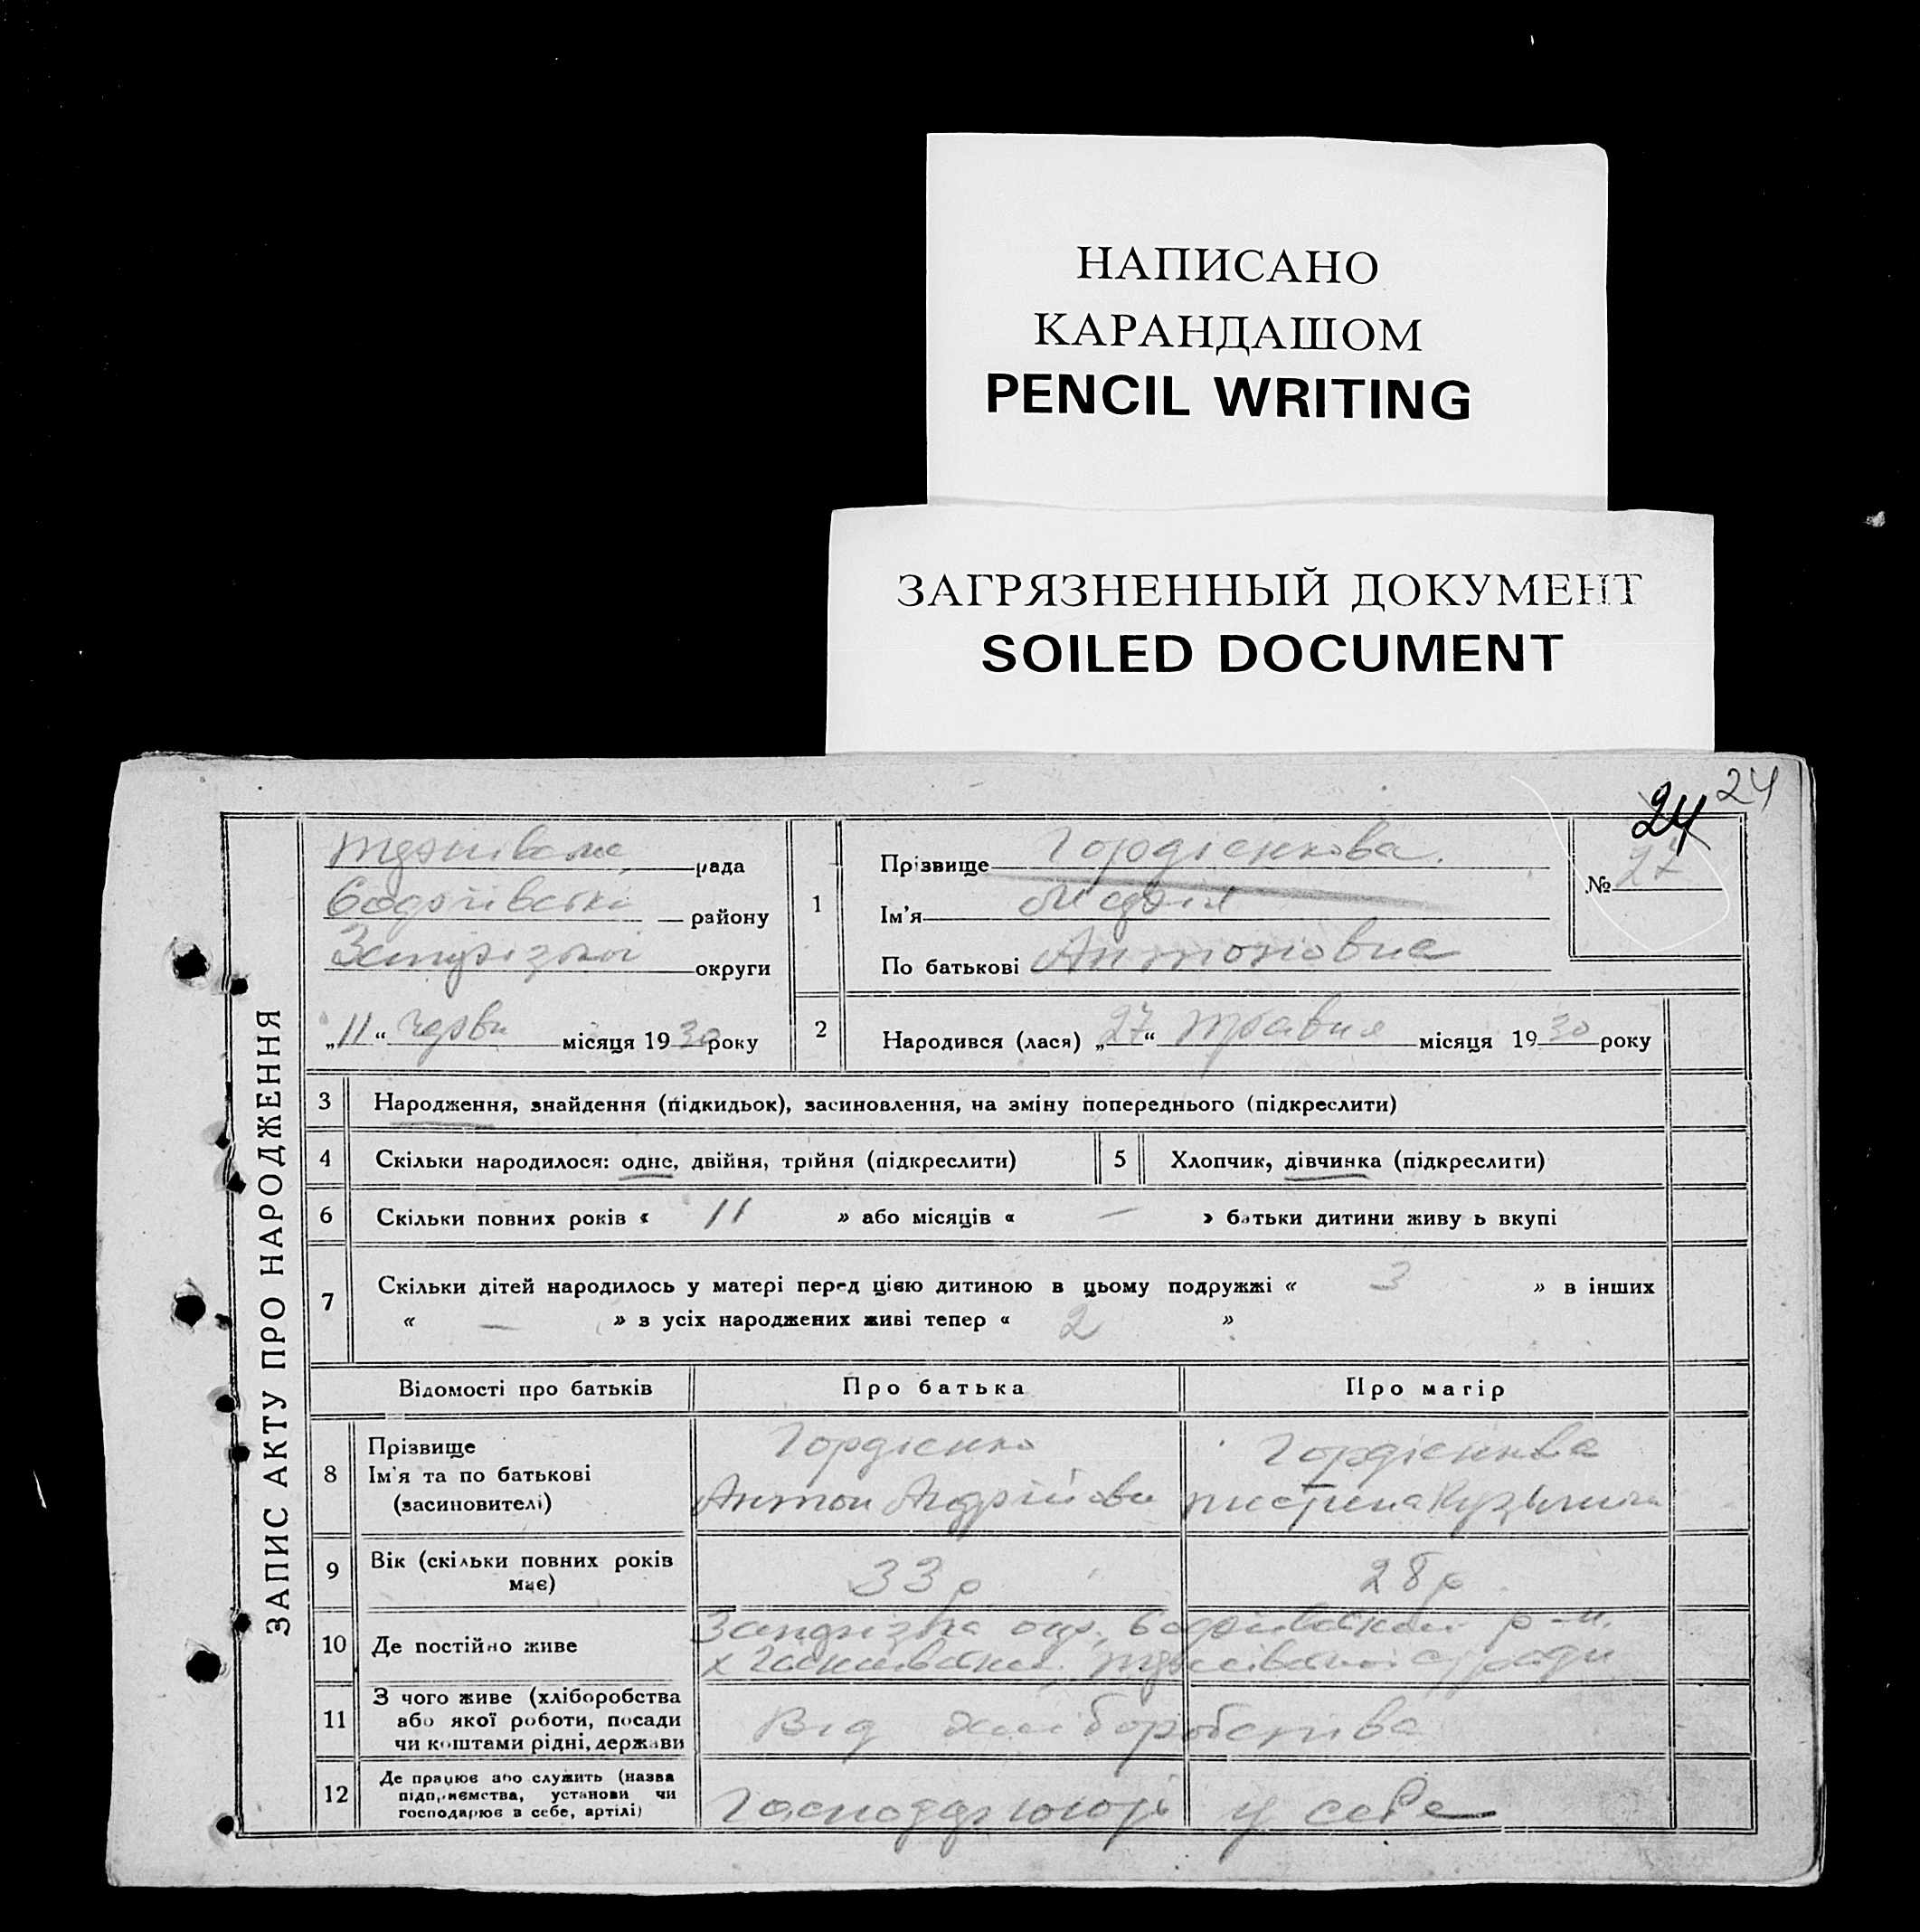 НАПИСАНО
КАРАНДАШОМ
PENCIL WRITING
ЗАГРЯЗНЕННЫЙ ДОКУМЕНТ
SOILED DOCUMENT
24 24
ЗАПИС АКТУ ПРО НАРОДЖЕННЯ
рада
району
округи
„11“ червн місяця 1930 року
1
Прізвище Гордієнкова
Ім'я Марія
По батькові Антоновна
№ 27
2
Народився (лася) „27“ травня місяця 1930 року
3 Народження, знайдення (підкидьок), засиновлення, на зміну попереднього (підкреслити)
4 Скільки народилося: одне, двійня, трійня (підкреслити)
5 Хлопчик, дівчинка (підкреслити)
6 Скільки повних років « 11 » або місяців « — » батьки дитини живуть вкупі
7 Скільки дітей народилось у матері перед цією дитиною в цьому подружжі « 3 » в інших
« — » з усіх народжених живі тепер « 2 »
Відомості про батьків Про батька Про матір
8 Прізвище
Ім'я та по батькові
(засиновителі)
Гордієнко
Антон Андрійови
Гордієнкова
9 Вік (скільки повних років
має)
33 р
28 р
10 Де постійно живе
11 З чого живе (хліборобства
або якої роботи, посади
чи коштами рідні, держави
Від хліборобства
12 Де працює або служить (назва
підприємства, установи чи
господарює в себе, артілі)
у себе